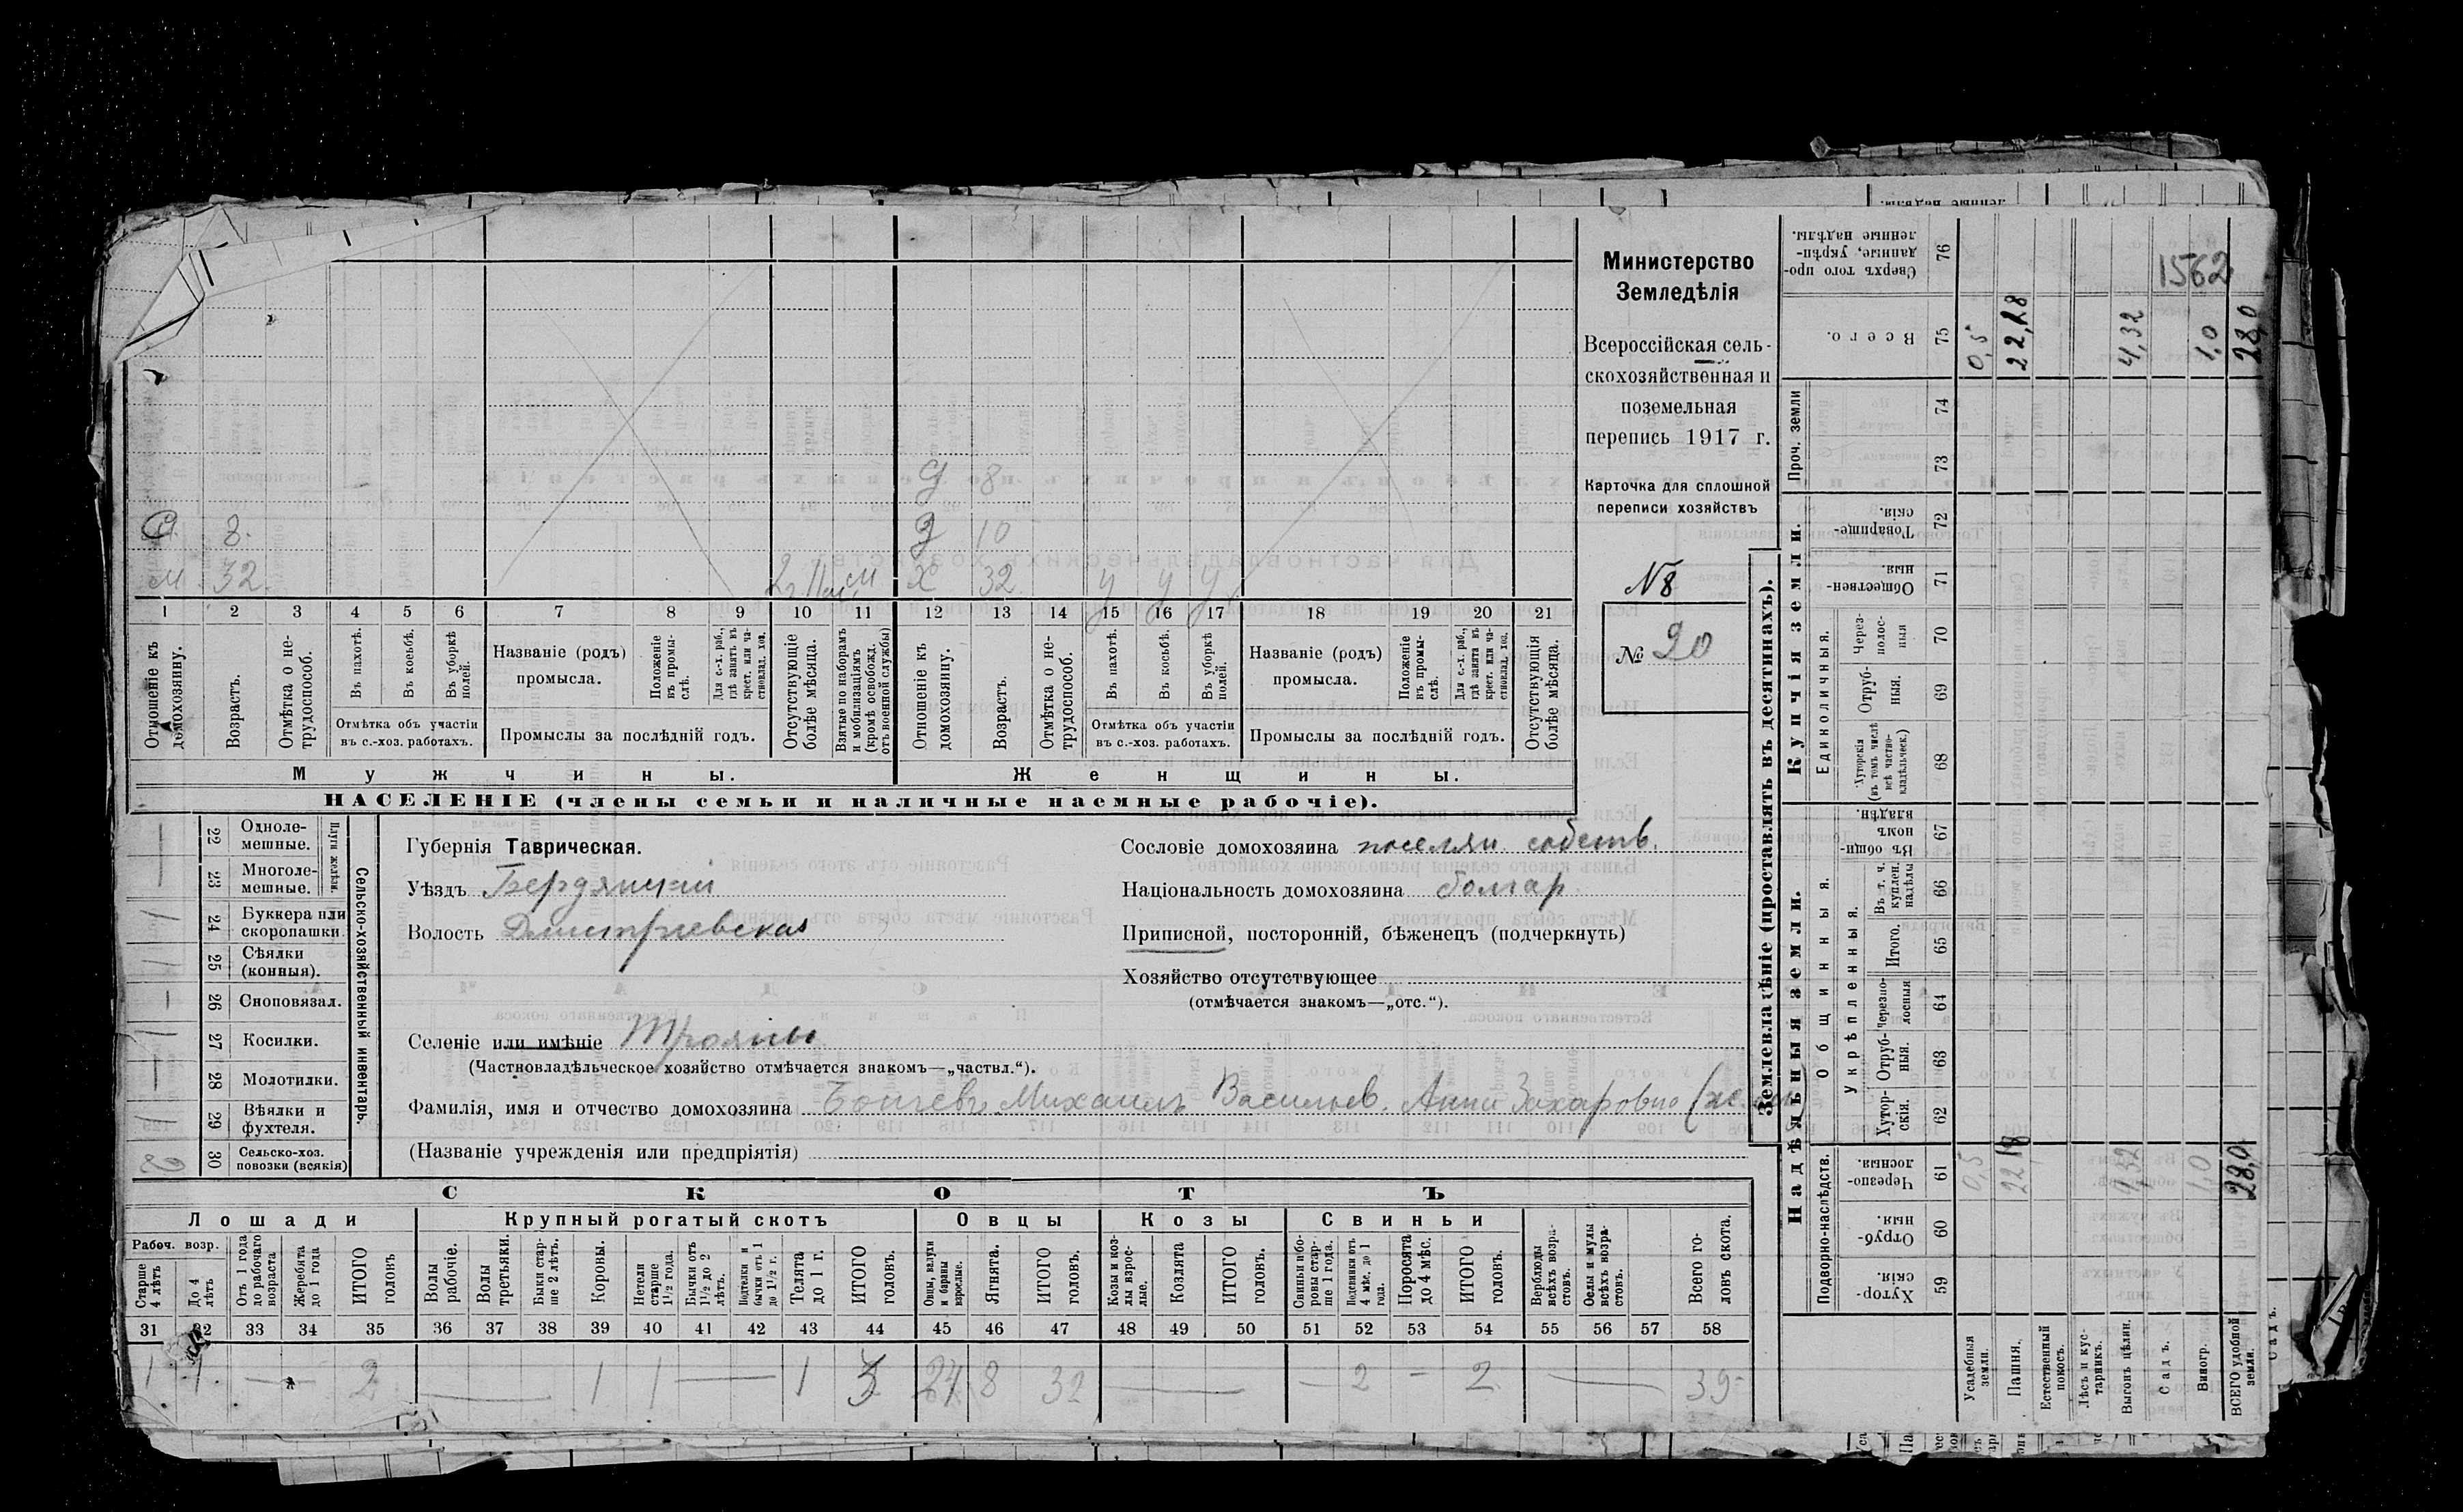 1562
Министерство
Земледѣлія
Всероссійская сель-
скохозяйственная и
поземельная
перепись 1917 г.
Карточка для сплошной
переписи хозяйствъ
№ 8
№ 20
Д 8
С. 8. Д 10
М 32. 2 г. 11 м. м Х 32 у у у
1 2 3 4 5 6 7 8 9 10 11 12 13 14 15 16 17 18 19 20 21
Отношеніе къ домохозяину.
Возрастъ.
Отмѣтка о не-трудоспособ.
Въ пахотѣ.
Въ косьбѣ.
Въ уборкѣ полей.
Отмѣтка объ участіи
въ с.-хоз. работахъ.
Названіе (родъ)
промысла.
Положеніе въ промы-слѣ.
Для с.-х. раб., гдѣ занятъ въ крест. или ча-стновлад. хоз.
Промыслы за послѣдній годъ.
Отсутствующіе болѣе мѣсяца.
Взятые по наборамъ и мобилизаціямъ (кромѣ освобожд. отъ военной службы)
Отношеніе къ домохозяину.
Возрастъ.
Отмѣтка о не-трудоспособ.
Въ пахотѣ.
Въ косьбѣ.
Въ уборкѣ полей.
Отмѣтка объ участіи
въ с.-хоз. работахъ.
Названіе (родъ)
промысла.
Положеніе въ промы-слѣ.
Для с.-х. раб., гдѣ занята въ крест. или ча-стновлад. хоз.
Промыслы за послѣдній годъ.
Отсутствующія болѣе мѣсяца.
Мужчины. Женщины.
НАСЕЛЕНІЕ (члены семьи и наличные наемные рабочіе).
Сельско-хозяйственный инвентарь.
Плуги желѣзн.
22 Одноле-мешные. —
23 Многоле-мешные. —
24 Буккера или скоропашки 1
25 Сѣялки (конныя). 1
26 Сноповязал. —
27 Косилки. 1
28 Молотилки. —
29 Вѣялки и фухтеля. 1
30 Сельско-хоз. повозки (всякія) 2
Губернія Таврическая.
Уѣздъ Бердянскій
Волость Дмитріевская
Селеніе или имѣніе Трояны
(Частновладѣльческое хозяйство отмѣчается знакомъ—„частвл.“).
Сословіе домохозяина поселян. собств.
Національность домохозяина болгар
Приписной, посторонній, бѣженецъ (подчеркнуть)
Хозяйство отсутствующее
(отмѣчается знакомъ—„отс.“).
Фамилія, имя и отчество домохозяина Михаилъ Васильев. Анна Захаровна
(Названіе учрежденія или предпріятія)
СКОТЪ
Лошади Крупный рогатый скотъ Овцы Козы Свиньи
Рабоч. возр.
Старше 4 лѣтъ
До 4 лѣтъ
Отъ 1 года до рабочаго возраста
Жеребята до 1 года
ИТОГО головъ
Волы рабочіе.
Волы третьяки.
Быки стар-ше 2 лѣтъ.
Коровы.
Нетели старше 1½ года.
Бычки отъ 1½ до 2 лѣтъ.
Подтелки и бычки отъ 1 до 1½ г.
Телята до 1 г.
ИТОГО головъ.
Овцы, валухи и бараны взрослые.
Ягнята.
ИТОГО головъ.
Козы и коз-лы взрос-лые.
Козлята
ИТОГО головъ.
Свиньи и бо-ровы стар-ше 1 года.
Подсвинки отъ 4 мѣс. до 1 года.
Поросята до 4 мѣс.
ИТОГО головъ.
Верблюды всѣхъ возра-стовъ.
Ослы и мулы всѣхъ возра-стовъ.
Всего го-ловъ скота.
31 32 33 34 35 36 37 38 39 40 41 42 43 44 45 46 47 48 49 50 51 52 53 54 55 56 57 58
1 1. — 2 — 1 1 — 1 3 24 8 32 — — 2 — 2 — 39
Землевладѣніе (проставлять въ десятинахъ).
Купчія земли.
Надѣльныя земли.
Сверхъ того про-данные, укрѣп-ленные надѣлы. 76
Всего. 75
Проч. земли 74 73
Товарище-скія. 72
Обществен-ныя. 71
Единоличныя.
Через-полос-ныя 70
Отруб-ныя. 69
Хуторскія (въ томъ числѣ всѣ частно-владѣльческ.) 68
Общинныя.
Въ общин-номъ владѣн. 67
Укрѣпленныя.
Въ т. ч. куплен. надѣлы 66
Итого. 65
Черезпо-лосныя 64
Отруб-ныя. 63
Хутор-скія. 62
Подворно-наслѣдств.
Черезпо-лосныя. 61
Отруб-ныя. 60
Хутор-скія. 59
Усадебныя земли. 0,5 0,5
Пашня. 22,18 22,18
Естественный покосъ.
Лѣсъ и кус-тарникъ.
Выгонъ цѣлин. 4,32 4,32
Садъ.
Виногр. 1,0 1,0
ВСЕГО удобной земли. 28,0 28,0